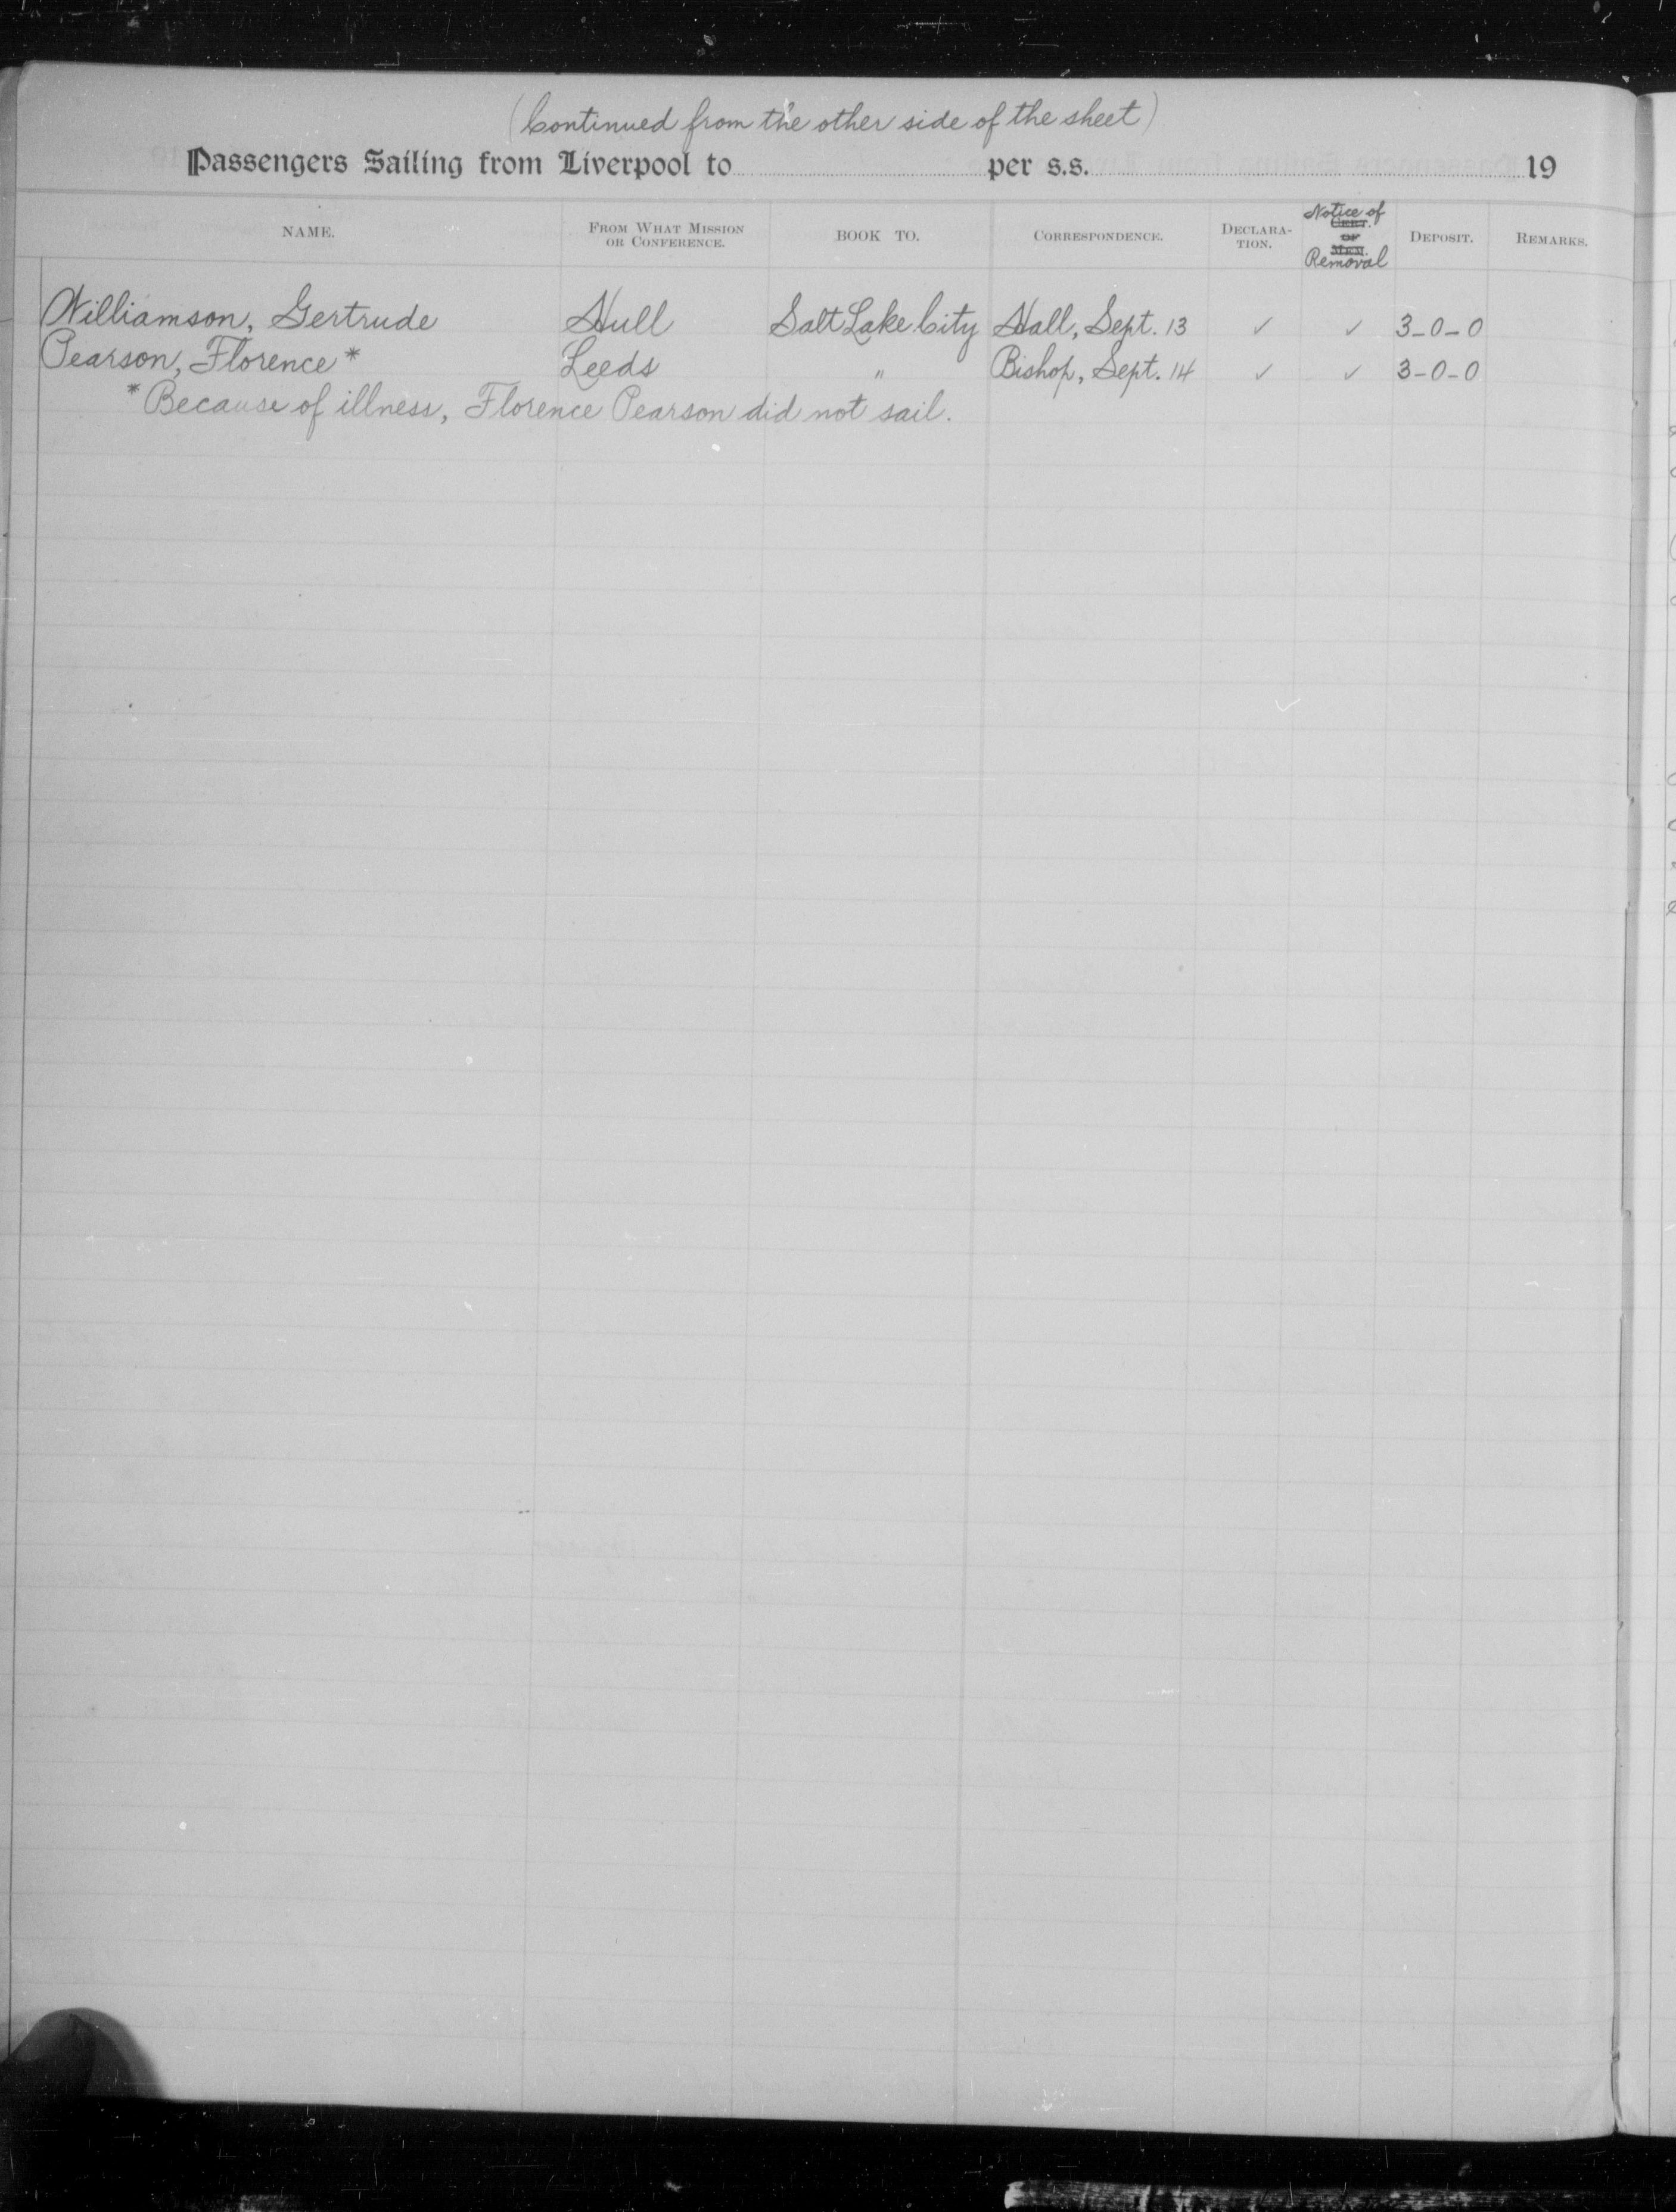 (Continued from the other side of the sheet)
Passengers Sailing from Liverpool to per s.s. 19
NAME. FROM WHAT MISSION OR CONFERENCE. BOOK TO. CORRESPONDENCE. DECLARA-TION. Notice of CERT. OF MEM. Removal DEPOSIT. REMARKS.
Williamson, Gertrude Hull Salt Lake City Hall, Sept. 13 ✓ ✓ 3-0-0
Pearson, Florence * Leeds " Bishop, Sept. 14 ✓ ✓ 3-0-0
* Because of illness, Florence Pearson did not sail.